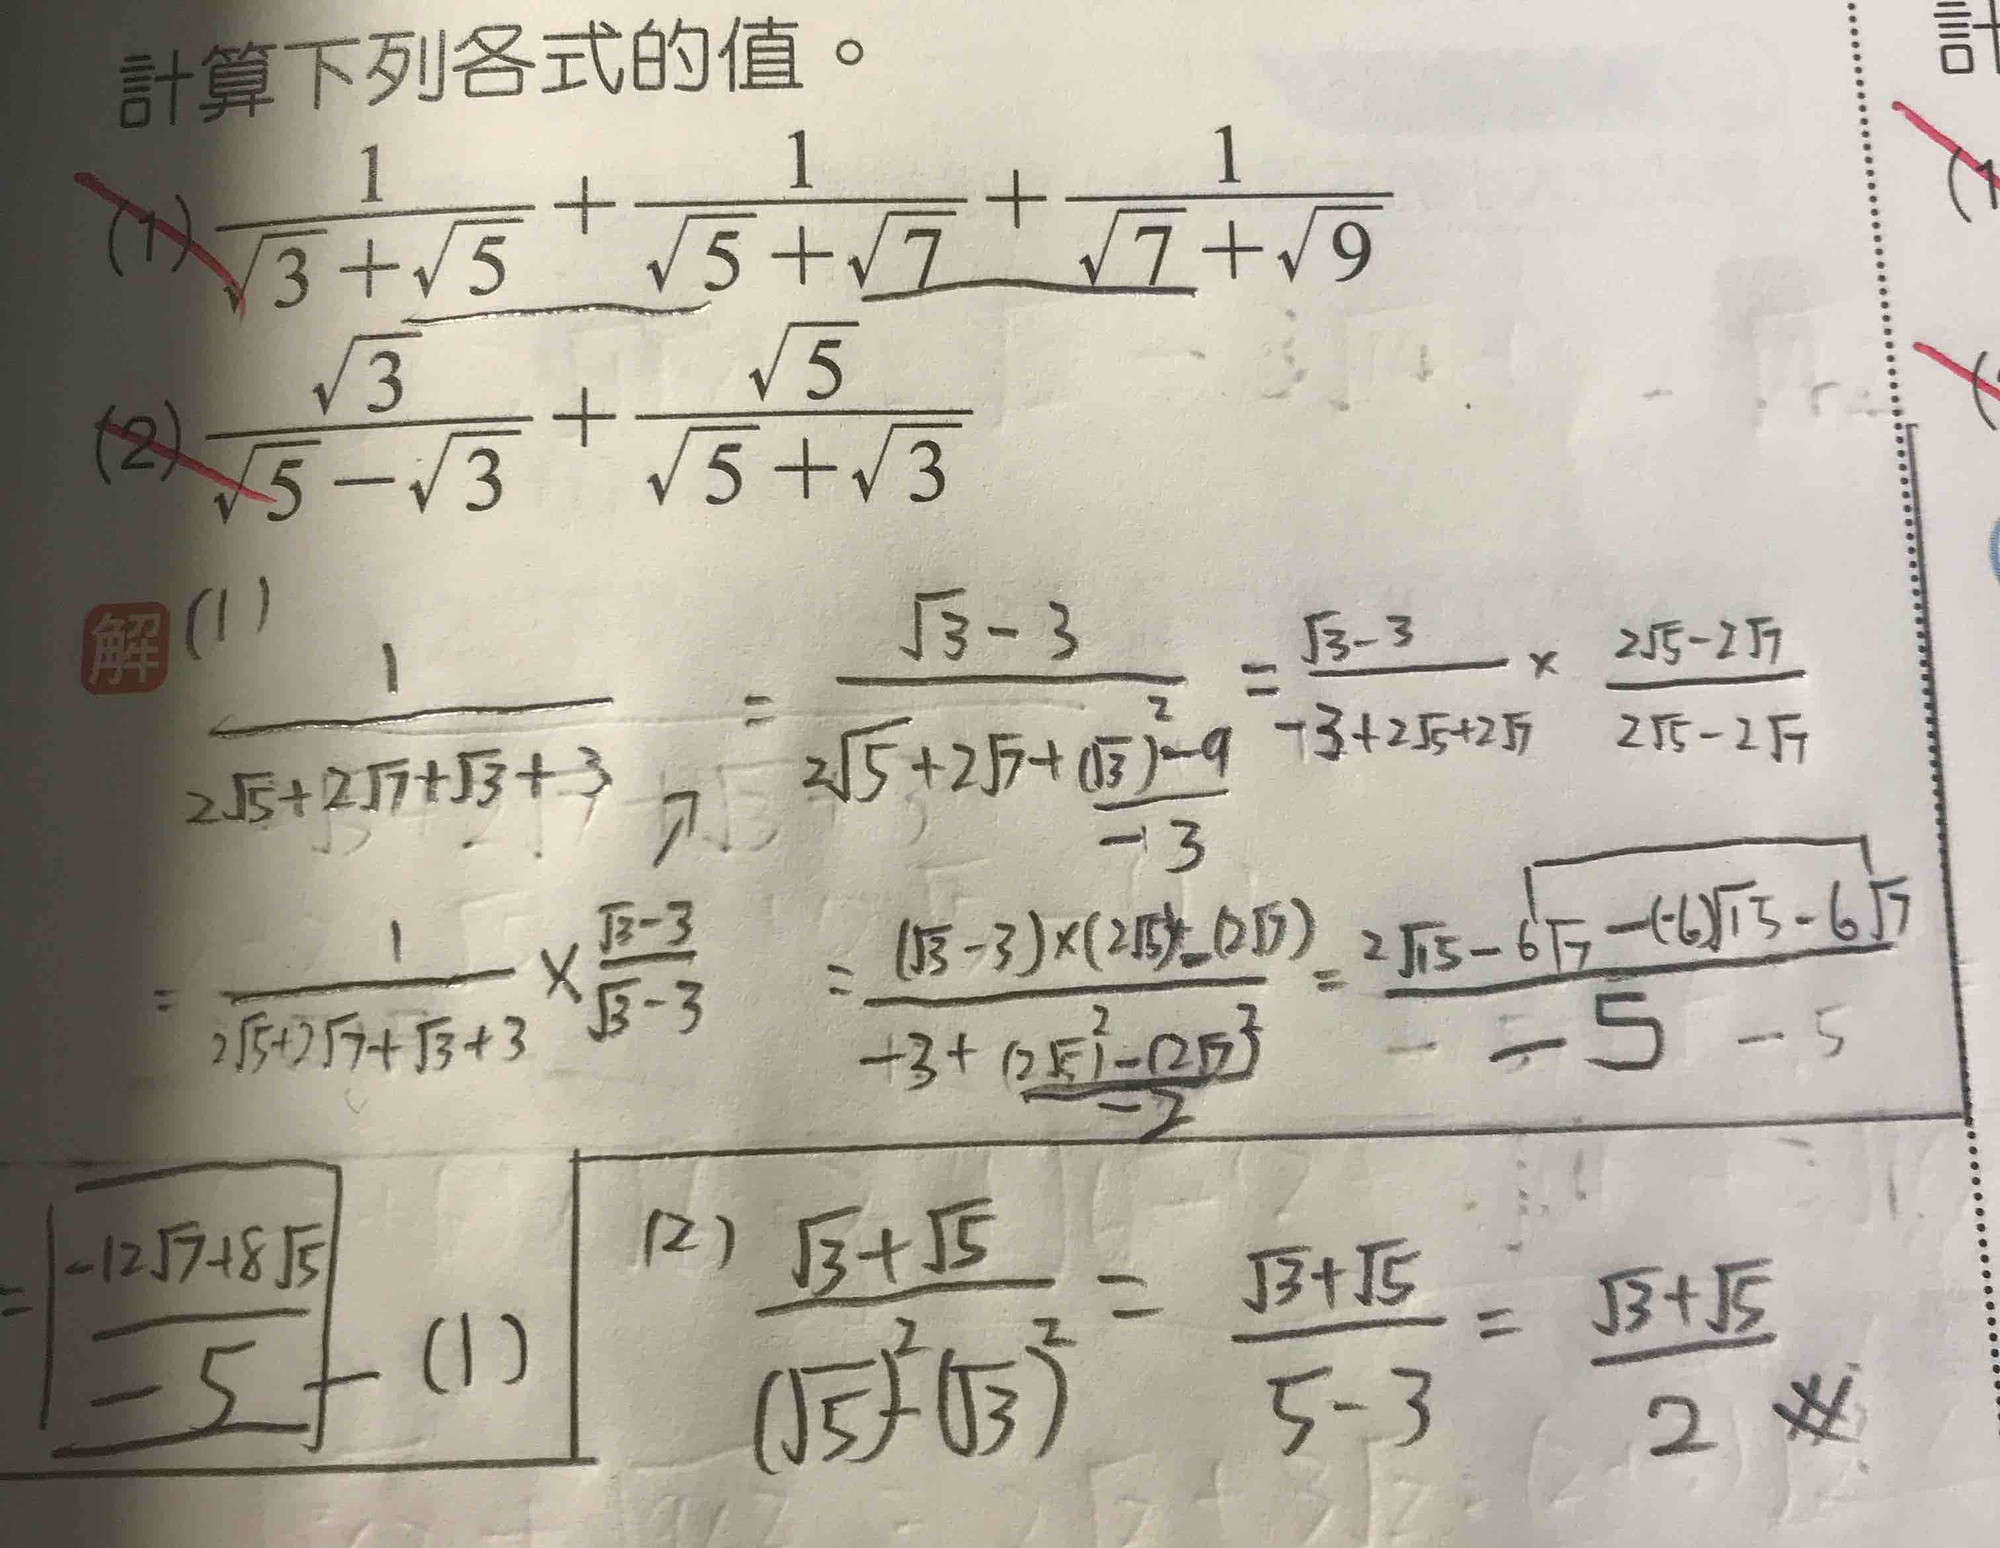 計算下列各式的值。
(1) 1/(√3+√5) + 1/(√5+√7) + 1/(√7+√9)
(2) √3/(√5−√3) + √5/(√5+√3)
解 (1)
1/(2√5+2√7+√3+3) = (√3-3)/(2√5+2√7+(√3)²-9) = (√3-3)/(-3+2√5+2√7) × (2√5-2√7)/(2√5-2√7)
-3
= 1/(2√5+2√7+√3+3) × (√3-3)/(√3-3) = ((√3-3)×(2√5)-(2√7))/(-3+(2√5)²-(2√7)²) = (2√15-6√7-(-6)√15-6√7)/(-5) -5
-2
= (-12√7+8√5)/(-5) — (1)
(2) (√3+√5)/((√5)²-(√3)²) = (√3+√5)/(5-3) = (√3+√5)/2
計
(1